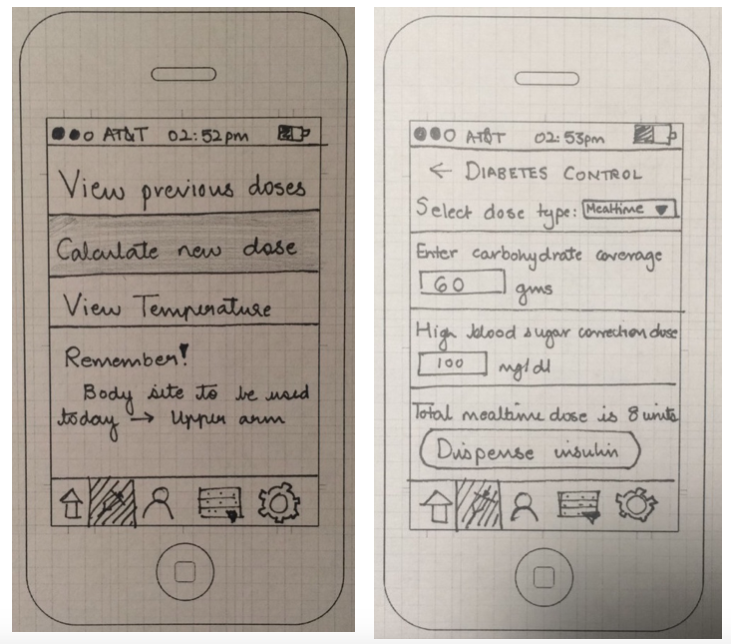 AT&T 02:52pm
View previous doses
Calculate new dose
View Temperature
Remember!
Body site to be used
today → Upper arm
AT&T 02:53pm
← DIABETES CONTROL
Select dose type: Mealtime ▼
Enter carbohydrate coverage
60 gms
High blood sugar correction dose
100 mg/dl
Total mealtime dose is 8 units
Dispense insulin